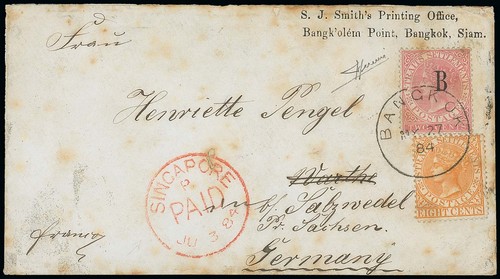 S. J. Smith's Printing Office,
Bangk'olém Point, Bangkok, Siam.
Frau
Henriette Pengel
STRAITS SETTLEMENTS
B
POSTAGE
BANGKOK
MY 27
84
SINGAPORE
P
PAID
JU 3 84
Warthe
b/ Salzwedel
Pr. Sachsen.
Germany
franco
POSTAGE
EIGHT CENTS